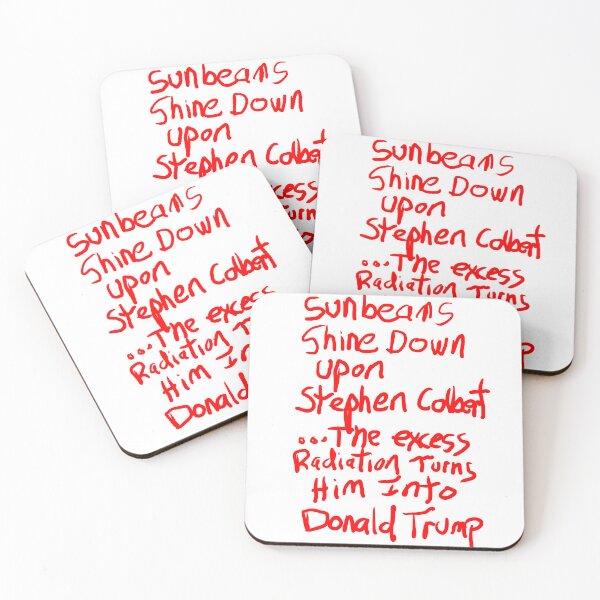 Sunbeams
Shine Down
upon
Stephen Colbert
excess
Turns
Sunbeams
Shine Down
upon
Stephen Colbert
...The excess
Radiation Turns
Sunbeams
Shine Down
upon
Stephen Colbert
...The excess
Radiation T
Him In
Donald
Sunbeams
Shine Down
upon
Stephen Colbert
...The excess
Radiation Turns
Him Into
Donald Trump